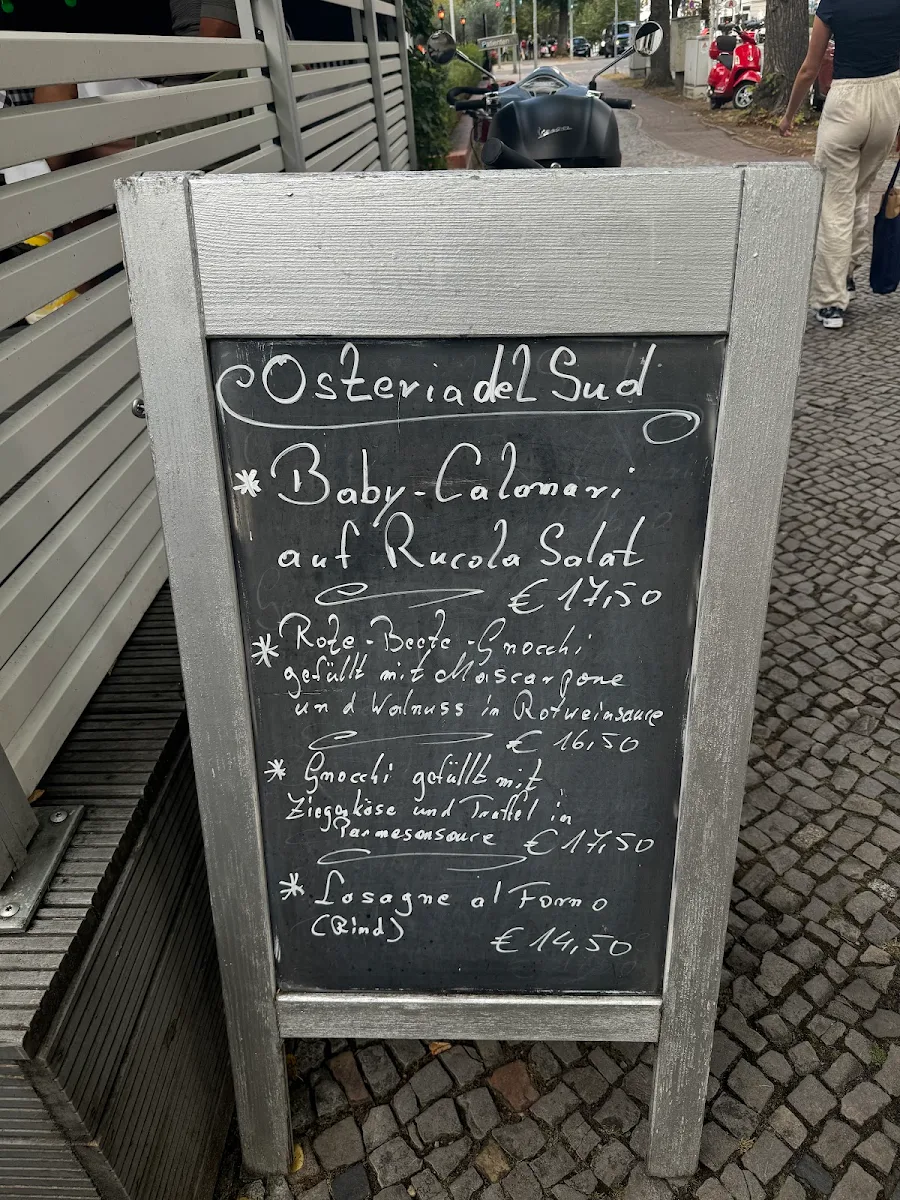 Patienten
Vespa
Osteria del Sud
* Baby-Calamari
auf Rucola Salat
€ 17,50
* Rote-Beete-Gnocchi
gefüllt mit Mascarpone
und Walnuss in Rotweinsauce
€ 16,50
* Gnocchi gefüllt mit
Ziegenkäse und Trüffel in
Parmesansauce € 17,50
* Lasagne al Forno
(Rind) € 14,50